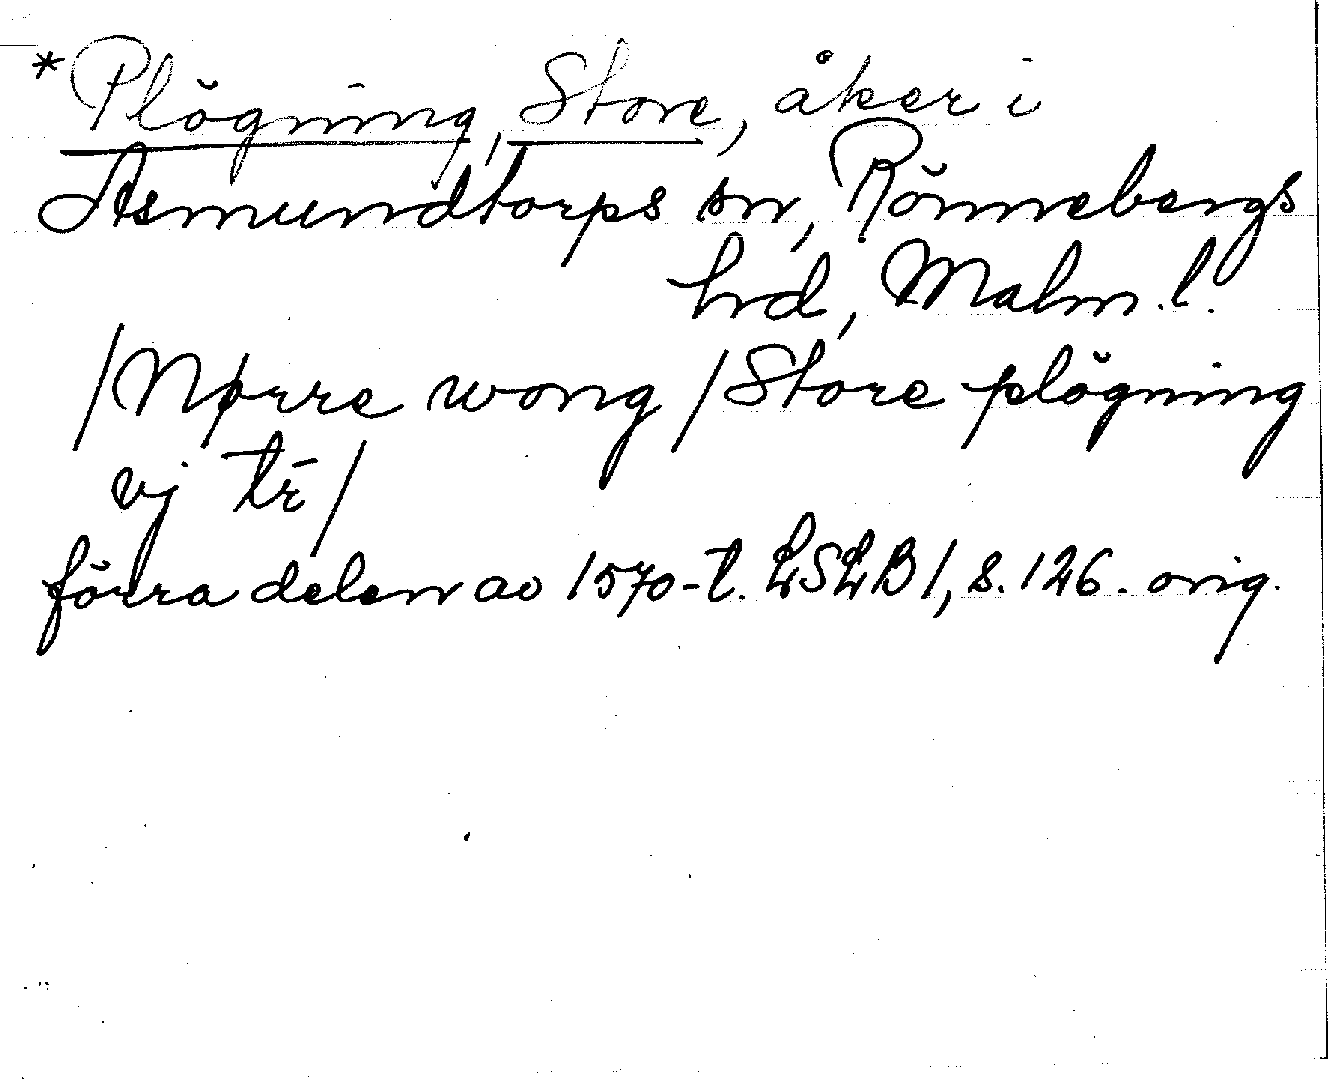 *Plögning, Store, åker i
Asmundtorps sn, Rönnebergs
hrd, Malm. l.
/Nørre wong / Store plögning
vj tr̄ /
förra delen av 1570-t. LSLB 1, s. 126. orig.